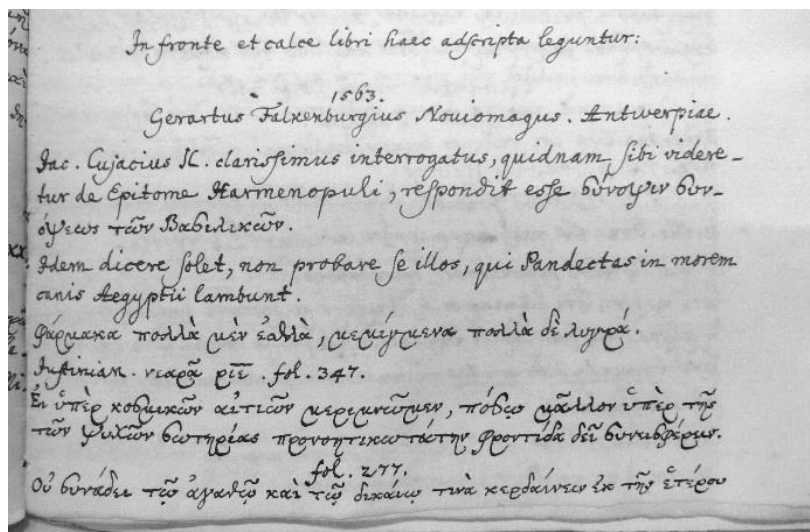 In fronte et calce libri haec adscripta leguntur:
1563.
Gerartus Falkenburgius Noviomagus. Antwerpiae.
Jac. Cujacius JC. clarissimus interrogatus, quidnam sibi videre-
tur de Epitome Harmenopuli, respondit esse σύνοψιν συν-
όψεως τῶν Βασιλικῶν.
Idem dicere solet, non probare se illos, qui Pandectas in morem
canis Aegyptii lambunt.
Φάρμακα πολλὰ μὲν ἐσθλὰ, μεμίγμενα πολλὰ δὲ λυγρά.
Justinian. νεαρᾶ ριε. fol. 347.
Εἰ ὑπὲρ κοσμικῶν αἰτιῶν μεριμνῶμεν, πόσῳ μᾶλλον ὑπὲρ τῆς
τῶν ψυχῶν σωτηρίας προνοητικωτάτην φροντίδα δεῖ συνεισφέρειν.
fol. 277.
Οὐ συνάδει τῷ ἀγαθῷ καὶ τῷ δικαίῳ τινὰ κερδαίνειν ἐκ τῆς ἑτέρου